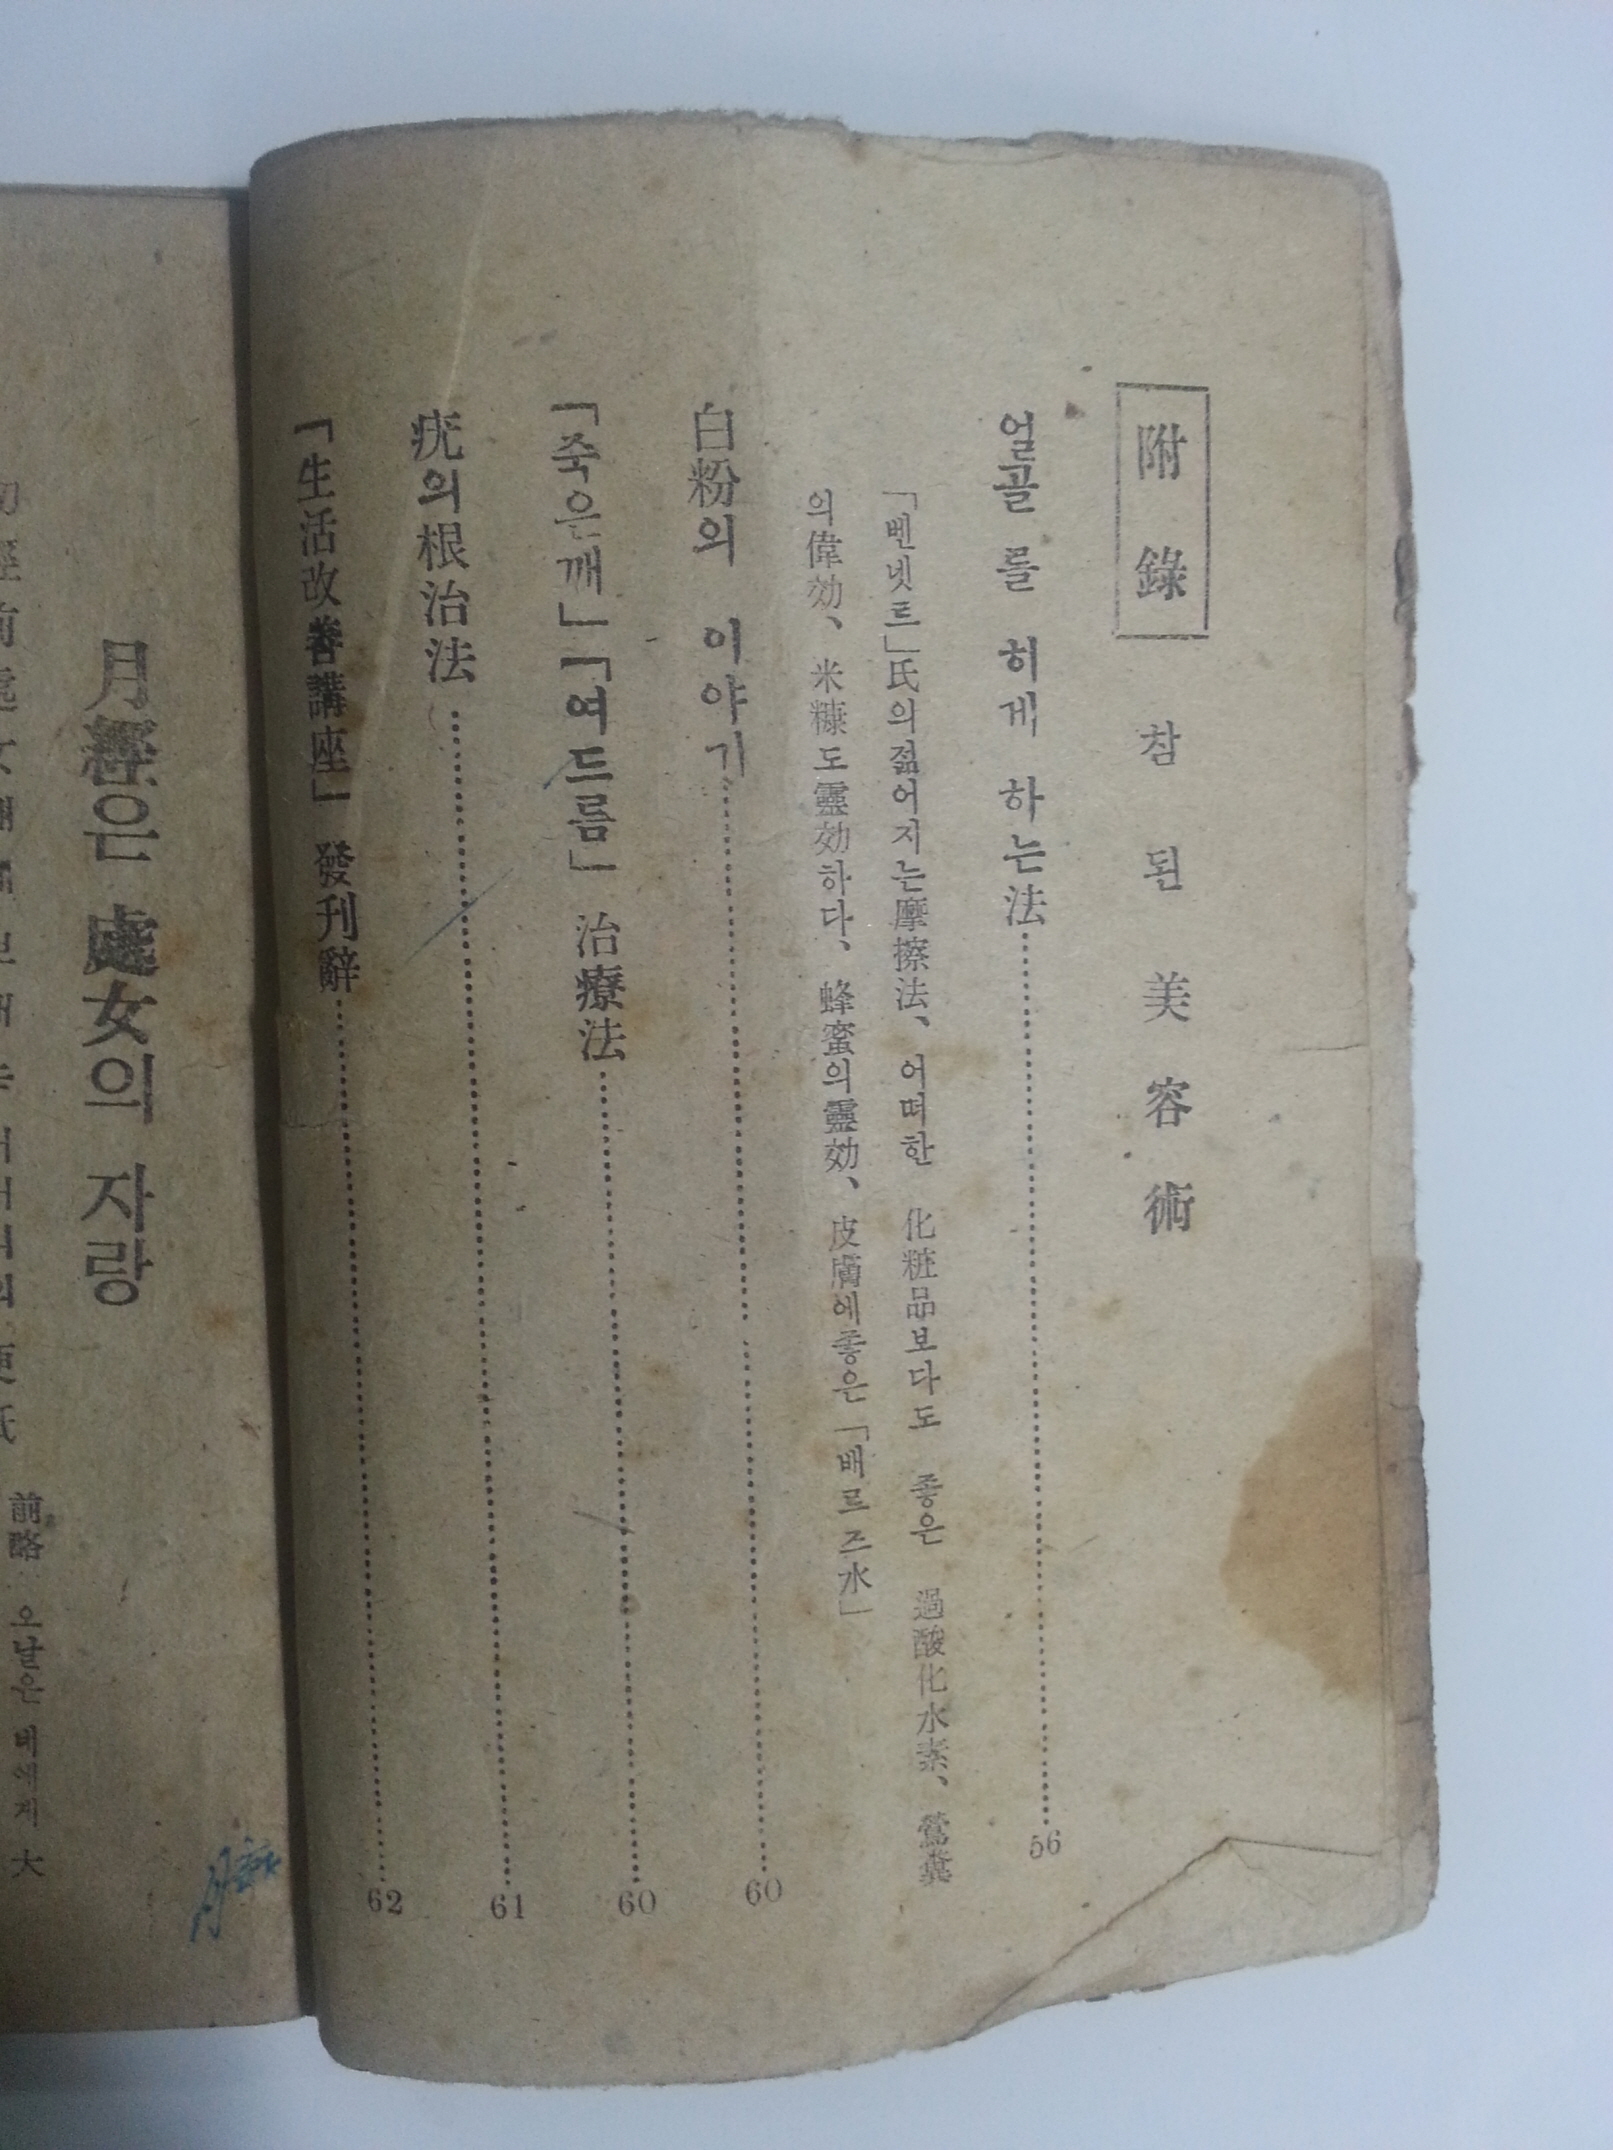 附錄 참된美容術
얼골를 히게 하는法 56
「벤넷트」氏의젊어지는摩擦法、어떠한 化粧品보다도 좋은 過酸化水素、鶯糞
의偉効、米糠도靈効하다、蜂蜜의靈効、皮膚에좋은「배르즈水」
白粉의 이야기 60
「죽은깨」「여드름」 治療法 60
疣의根治法 61
「生活改善講座」發刊辭 62
月經은 處女의 자랑
前略 오날은 비에게 大